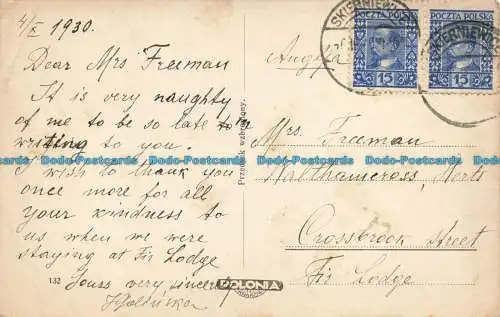 4/X 1930.
Dear Mrs Freeman
It is very naughty
of me to be so late in
writing to you.
I wish to thank you
once more for all
your kindness to
us when we were
staying at Fir Lodge
Yours very sincerely
132
Przedruk wzbroniony.
POLONIA
SKIERNIEWICE
POCZTA POLSKA
15 15
SKIERNIEWICE
15 15
Anglja
Mrs. Freeman
Walthamcross, Herts
Crossbrook Street
Fir Lodge
Dodo-Postcards Dodo-Postcards Dodo-Postcards Dodo-Postcards